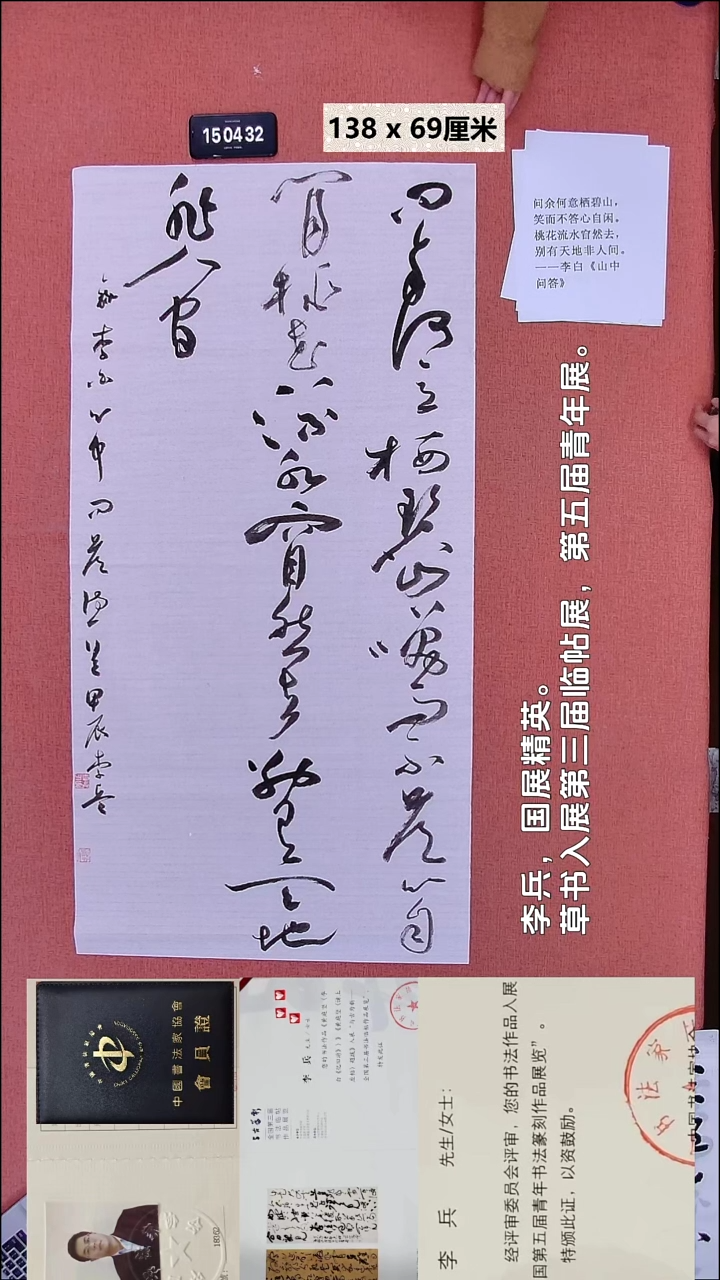 15 04 32
138 x 69厘米
问余何意栖碧山，
笑而不答心自闲。
桃花流水窅然去，
别有天地非人间。
——李白《山中
问答》
问余何意栖碧山笑而不答心自
闲桃花流水窅然去别有天地
非人间
李白山中问答 甲辰李兵
李兵，国展精英。
草书入展第三届临帖展，第五届青年展。
中國書法家協會
會員證
李 兵
全国第三届
书法临帖
作品展览
特发此证
李 兵 先生/女士：
经评审委员会评审，您的书法作品入展
国第五届青年书法篆刻作品展览”。
特颁此证，以资鼓励。